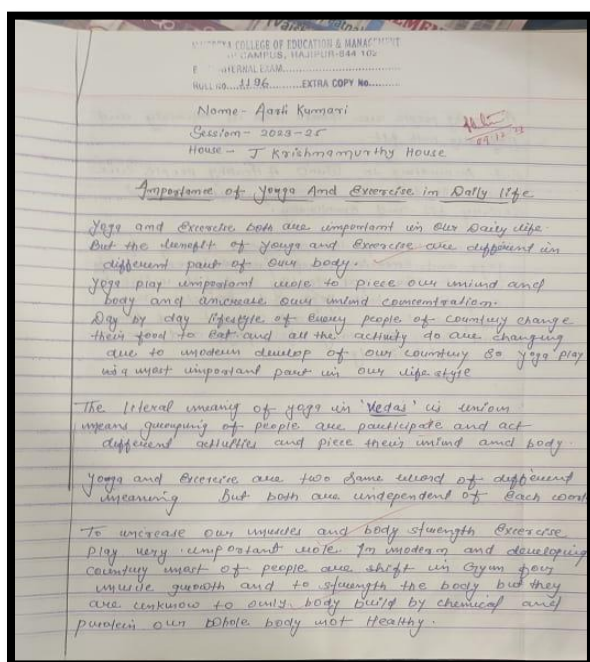 COLLEGE OF EDUCATION & MANAGEMENT
CAMPUS, HAJIPUR-844 102
INTERNAL EXAM
ROLL No. 1196 EXTRA COPY No.
Name - Aarti Kumari
Session - 2023-25
House - J Krishnamurthy House
Importance of Youga And Excercise in Daily life
Yoga and Excercise both are important in our Daily life.
But the benefit of Youga and Excercise are different in
different part of our body.
Yoga play important role to piece our mind and
body and increase our mind concentration.
Day by day lifestyle of every people of country change
their food to eat and all the activity do are changing
due to modern develop of our country So Yoga play
a most important part in our life style
The literal meaning of yoga in 'Vedas' is union
means grouping of people are participate and act
different activities and piece their mind and body.
Youga and Excercise are two Same word of different
meaning But both are independent of Each word
To increase our muscles and body strength Excercise
play very important role. In modern and developing
country most of people are shift in Gym for
muscle growth and to strength the body but they
are unknow to only body build by chemical and
protein our Whole body not Healthy.